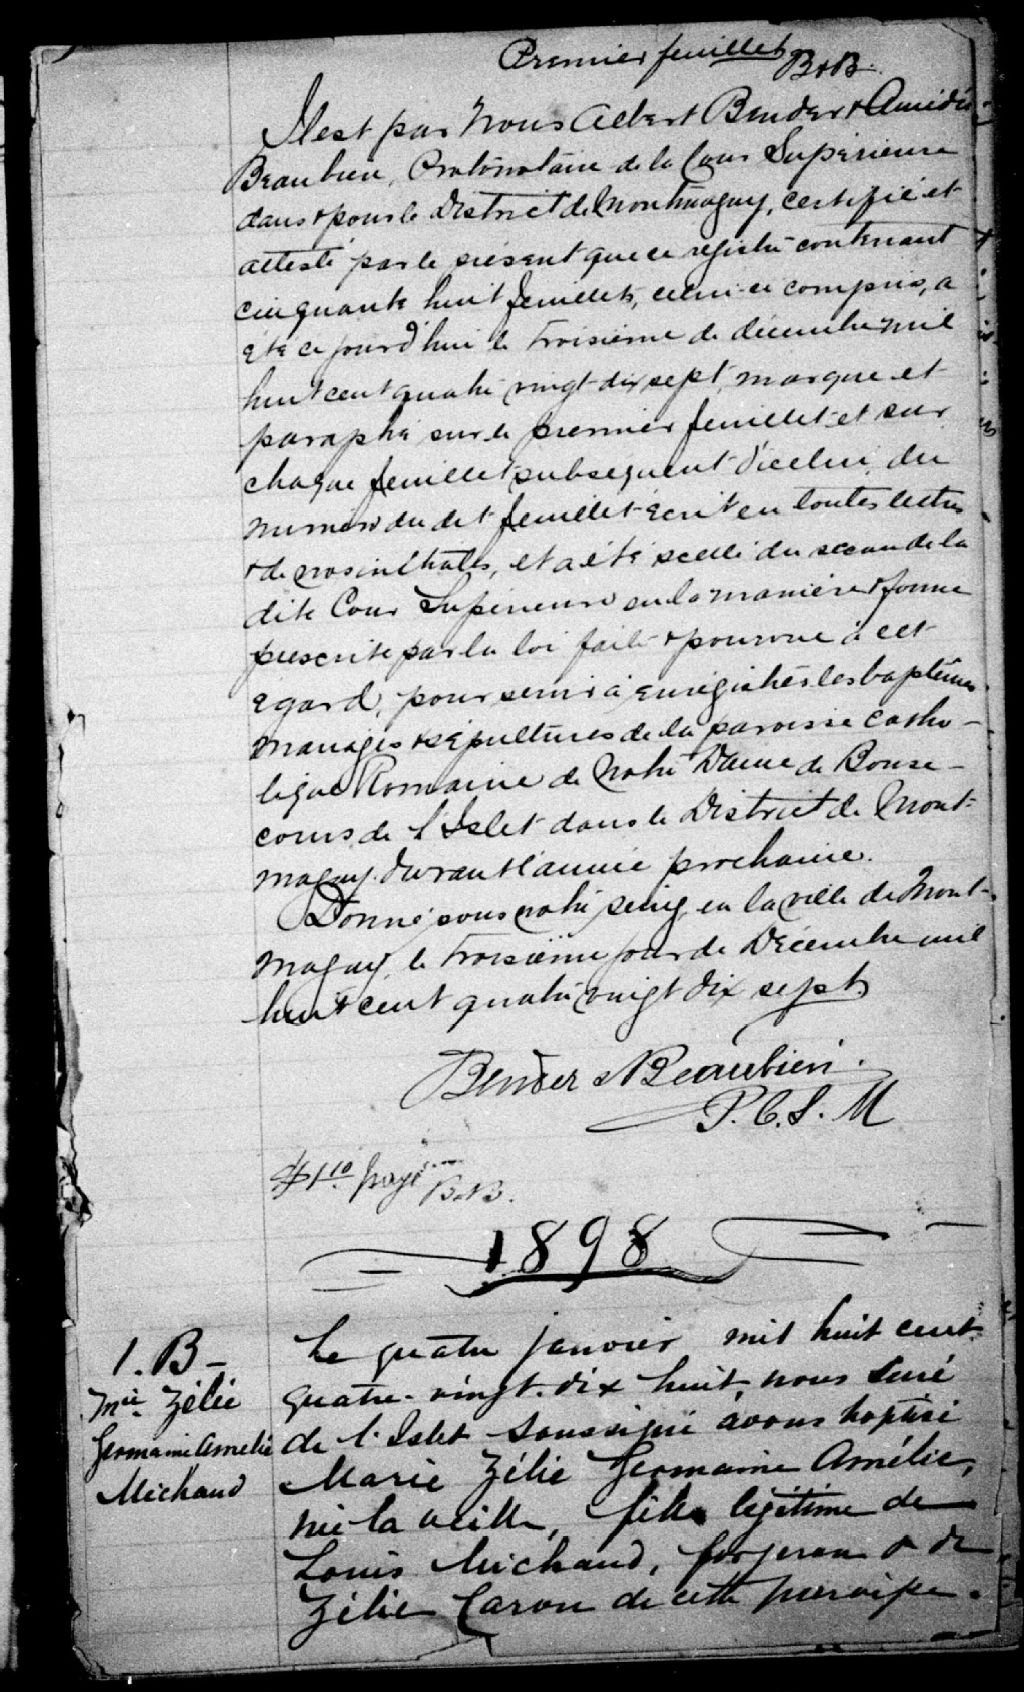 Premier feuillet
B & B.
Il est par Nous Albert Bender & Amédée
Beaubien, Protonotaire de la Cour Supérieure
dans & pour le District de Montmagny, certifié et
attesté par le présent que ce registre contenant
cinquante huit feuillets, celui-ci compris, a
été ce jourd'hui le troisième de décembre mil
huit cent quatre vingt-dix sept, marque et
paraphé sur le premier feuillet et sur
chaque feuillet subséquent d'icelui, du
numero du dit feuillet écrit en toutes lettres
& de nos initiales, et a été scellé du sceau de la
dite Cour Supérieure en la manière & forme
prescrite par la loi faite & pourvue à cet
égard, pour servir à enregistrer les baptêmes
mariages & sépultures de la paroisse Catho-
lique Romaine de Notre Dame de Bonse-
cours de l'Islet dans le District de Mont-
magny durant l'année prochaine.
Donné sous notre seing en la ville de Mont-
magny, le troisième jour de Décembre mil
huit cent quatre vingt dix sept.
Bender & Beaubien.
P. C. S. M
page
B & B.
1898
1. B-
Mie Zélie
Germaine Amélie
Michaud
Le quatre janvier mil huit cent
quatre-vingt-dix huit, nous Curé
de l'Islet soussigné avons baptisé
Marie Zélie Germaine Amélie,
née la veille, fille légitime de
Louis Michaud, forgeron & de
Zélie Caron de cette paroisse.